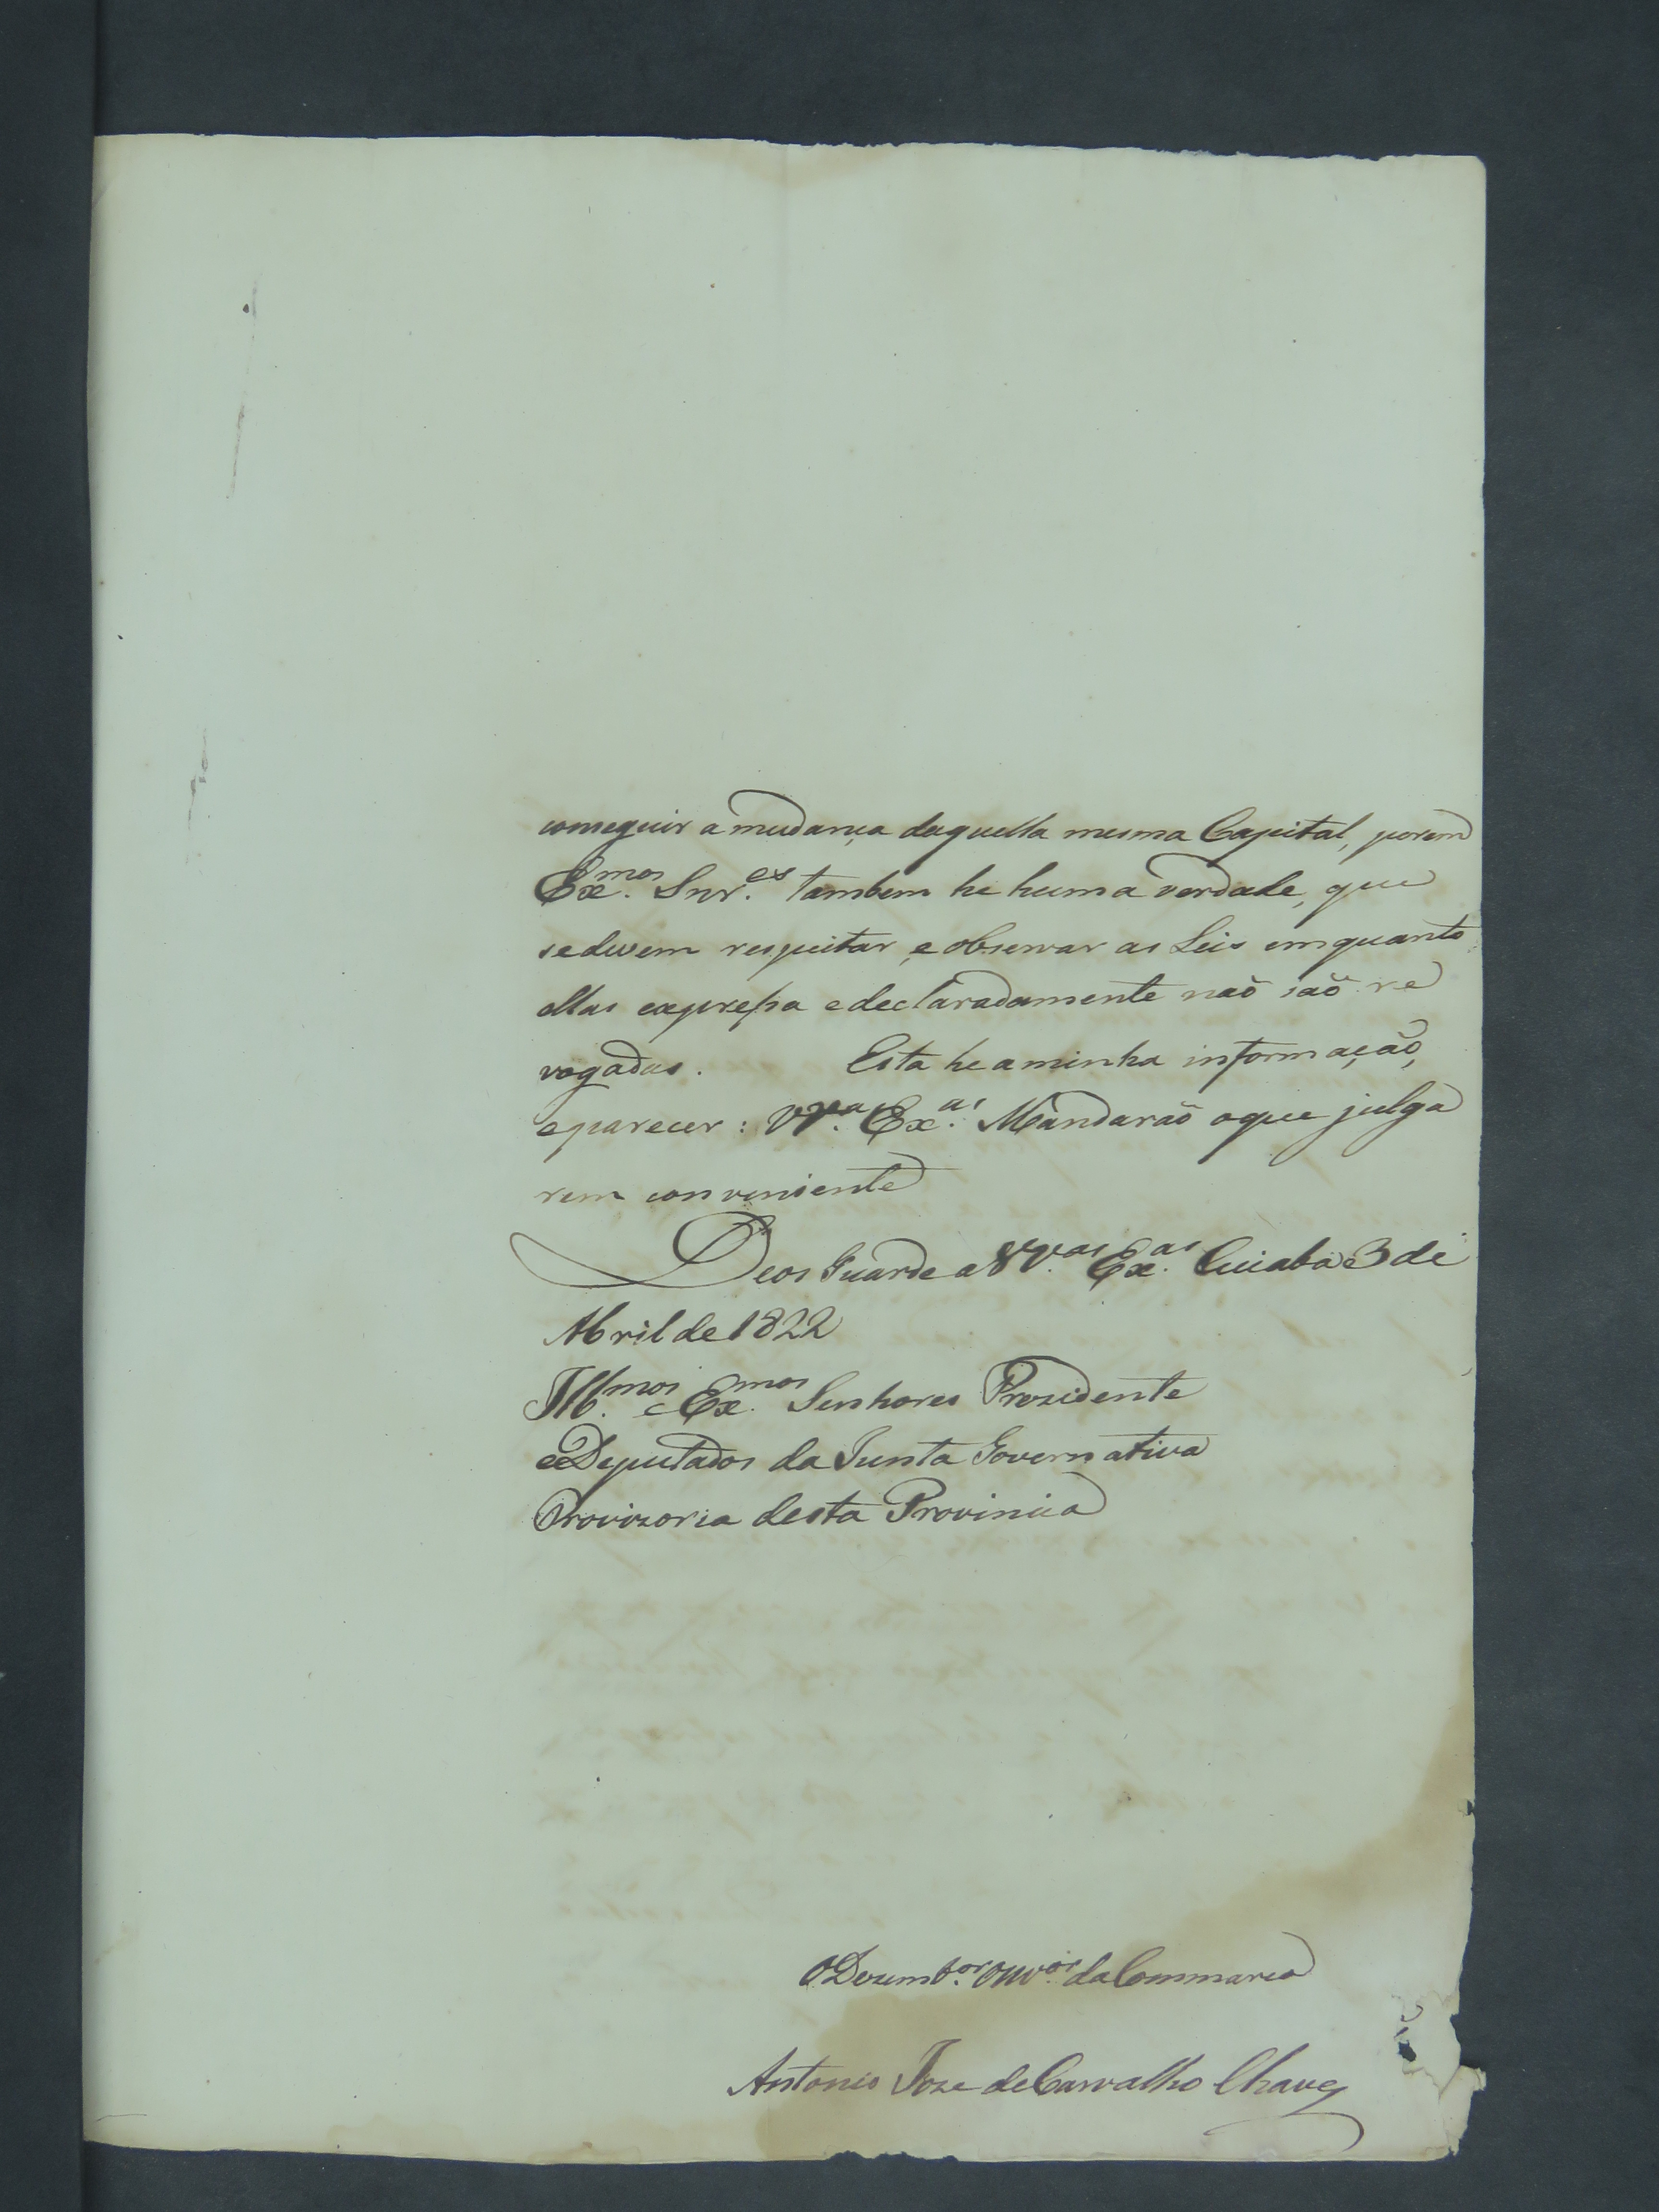 conseguir a mudança daquella mesma Capital, porem
Ex.mos Snr.es tambem he huma verdade, que
se devem respeitar, e observar as Leis emquanto
ellas expressa e declaradamente naõ saõ re
vogadas. Esta he a minha informaçaõ,
e parecer: VV.as Ex.as Mandaraõ o que julga
rem conveniente
Deos Guarde a VV.as Ex.as Cuiabá 3 de
Abril de 1822
Ill.mos e Ex.mos Senhores Prezidente
e Deputados da Junta Governativa
Provizoria desta Provincia
O Dezemb.or Ouv.or da Commarca
Antonio Joze de Carvalho Chaves